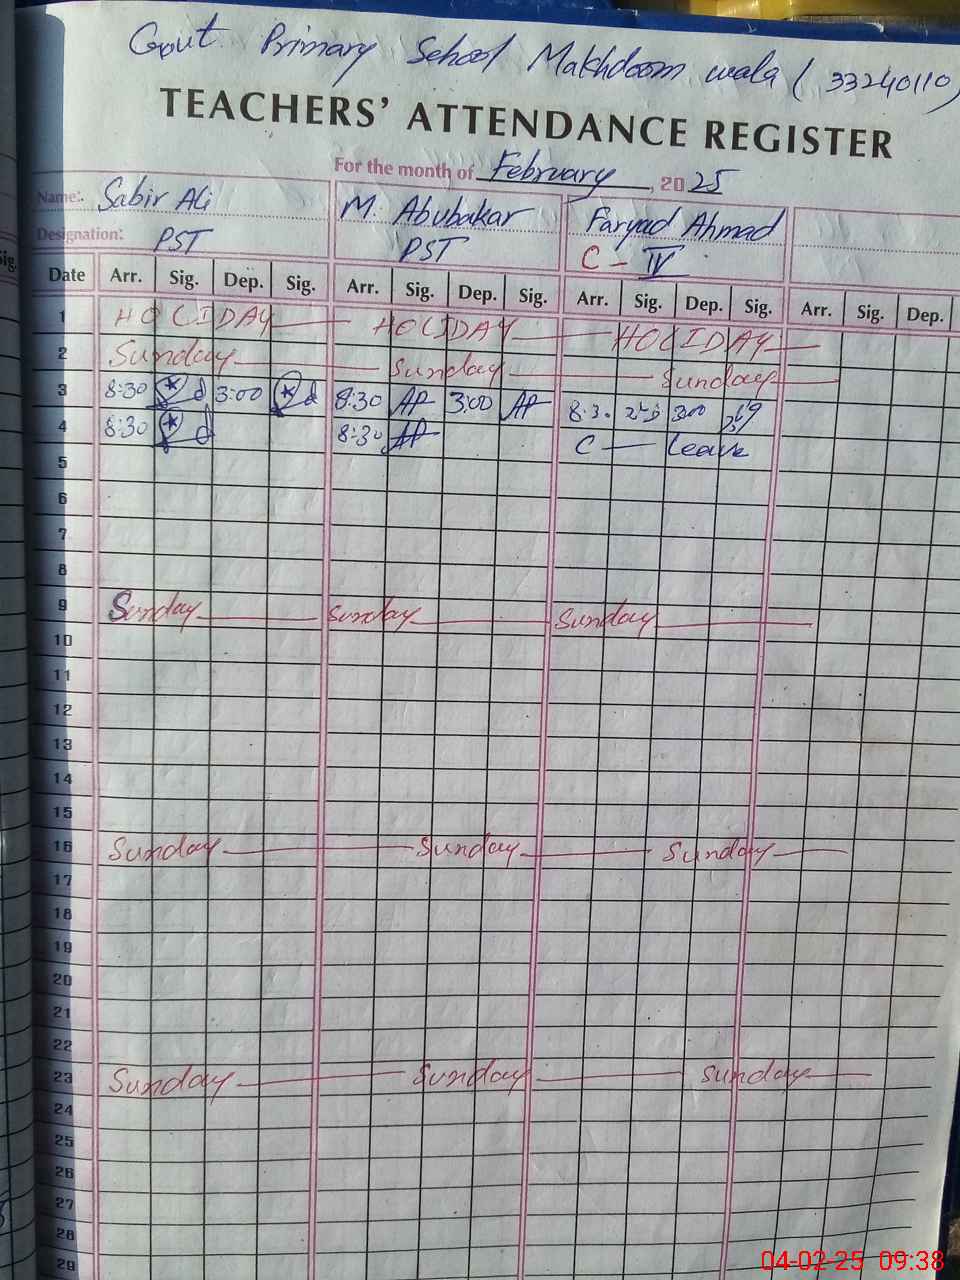 Govt. Primary School Makhdoom wala (33240110)
TEACHERS' ATTENDANCE REGISTER
For the month of February, 2025
Name: Sabir Ali M. Abubakar Faryad Ahmad
Designation: PST PST C - IV
Date Arr. Sig. Dep. Sig. Arr. Sig. Dep. Sig. Arr. Sig. Dep. Sig. Arr. Sig. Dep.
1 HOLIDAY HOLIDAY HOLIDAY
2 Sunday Sunday Sunday
3 8:30 3:00 8:30 AP 3:00 AP 8:30 3:00
4 8:30 8:30 AP C - Leave
5
6
7
8
9 Sunday Sunday Sunday
10
11
12
13
14
15
16 Sunday Sunday Sunday
17
18
19
20
21
22
23 Sunday Sunday Sunday
24
25
26
27
28
29
04-02-25 09:38